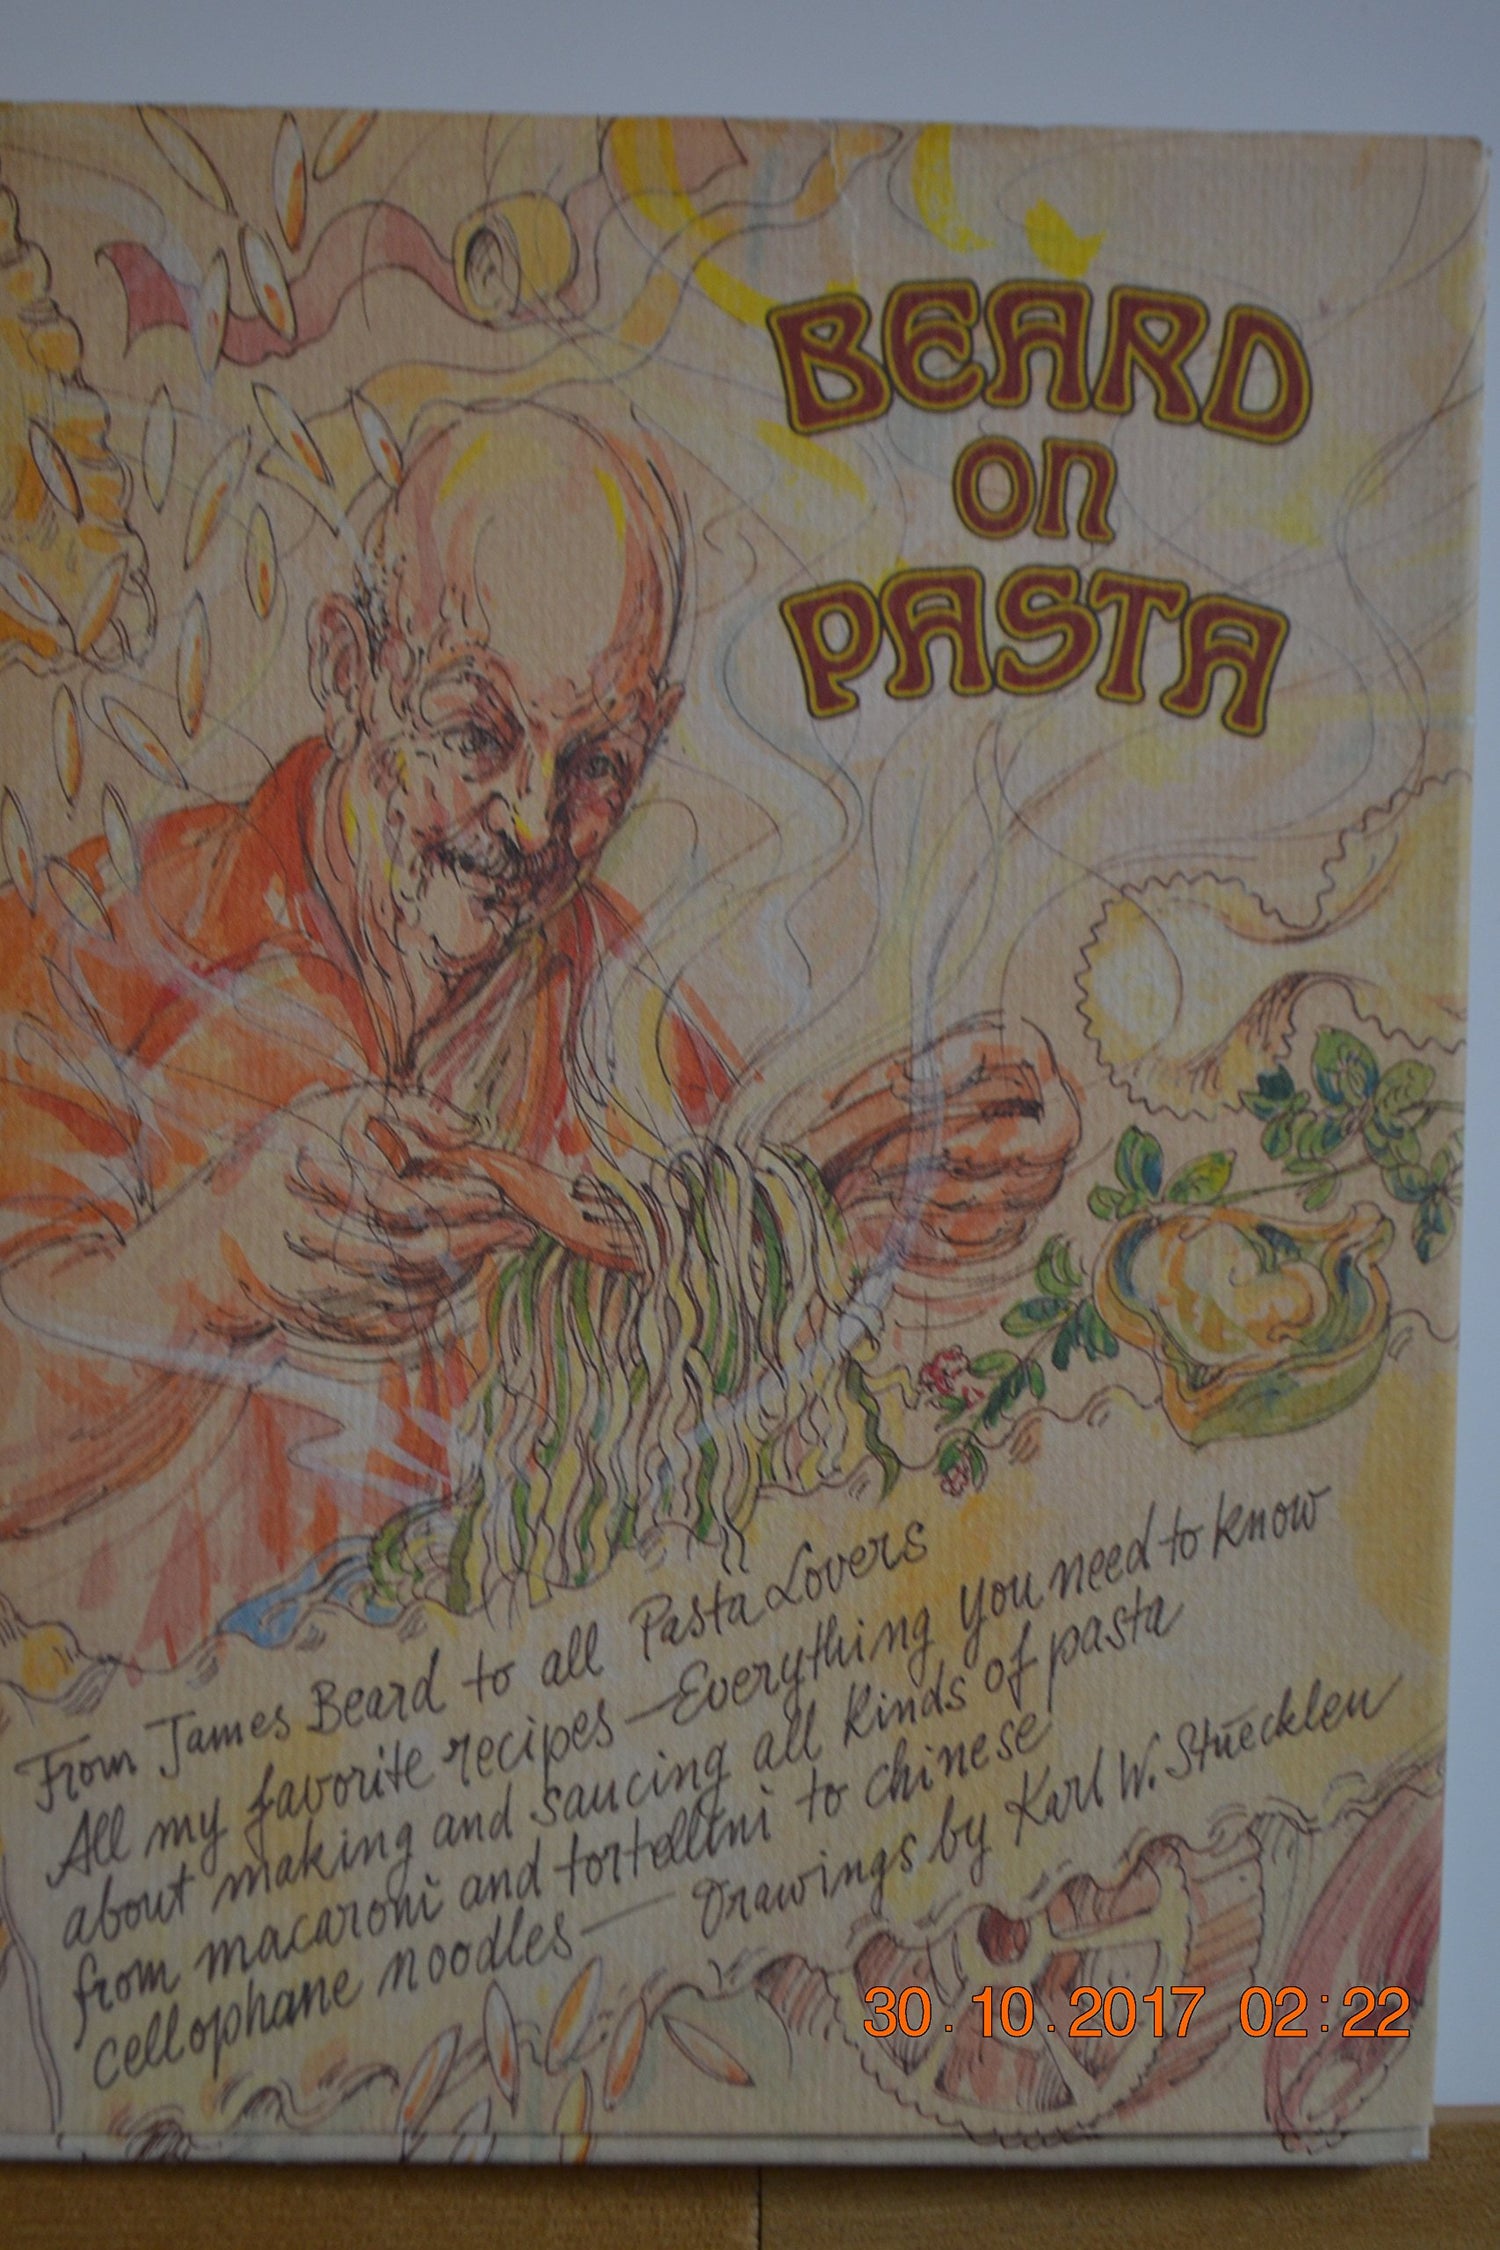 BEARD
on
PASTA
From James Beard to all Pasta Lovers
All my favorite recipes — Everything you need to know
about making and saucing all kinds of pasta
from macaroni and tortellini to chinese
cellophane noodles — Drawings by Karl W. Stuecklen
30.10.2017 02:22